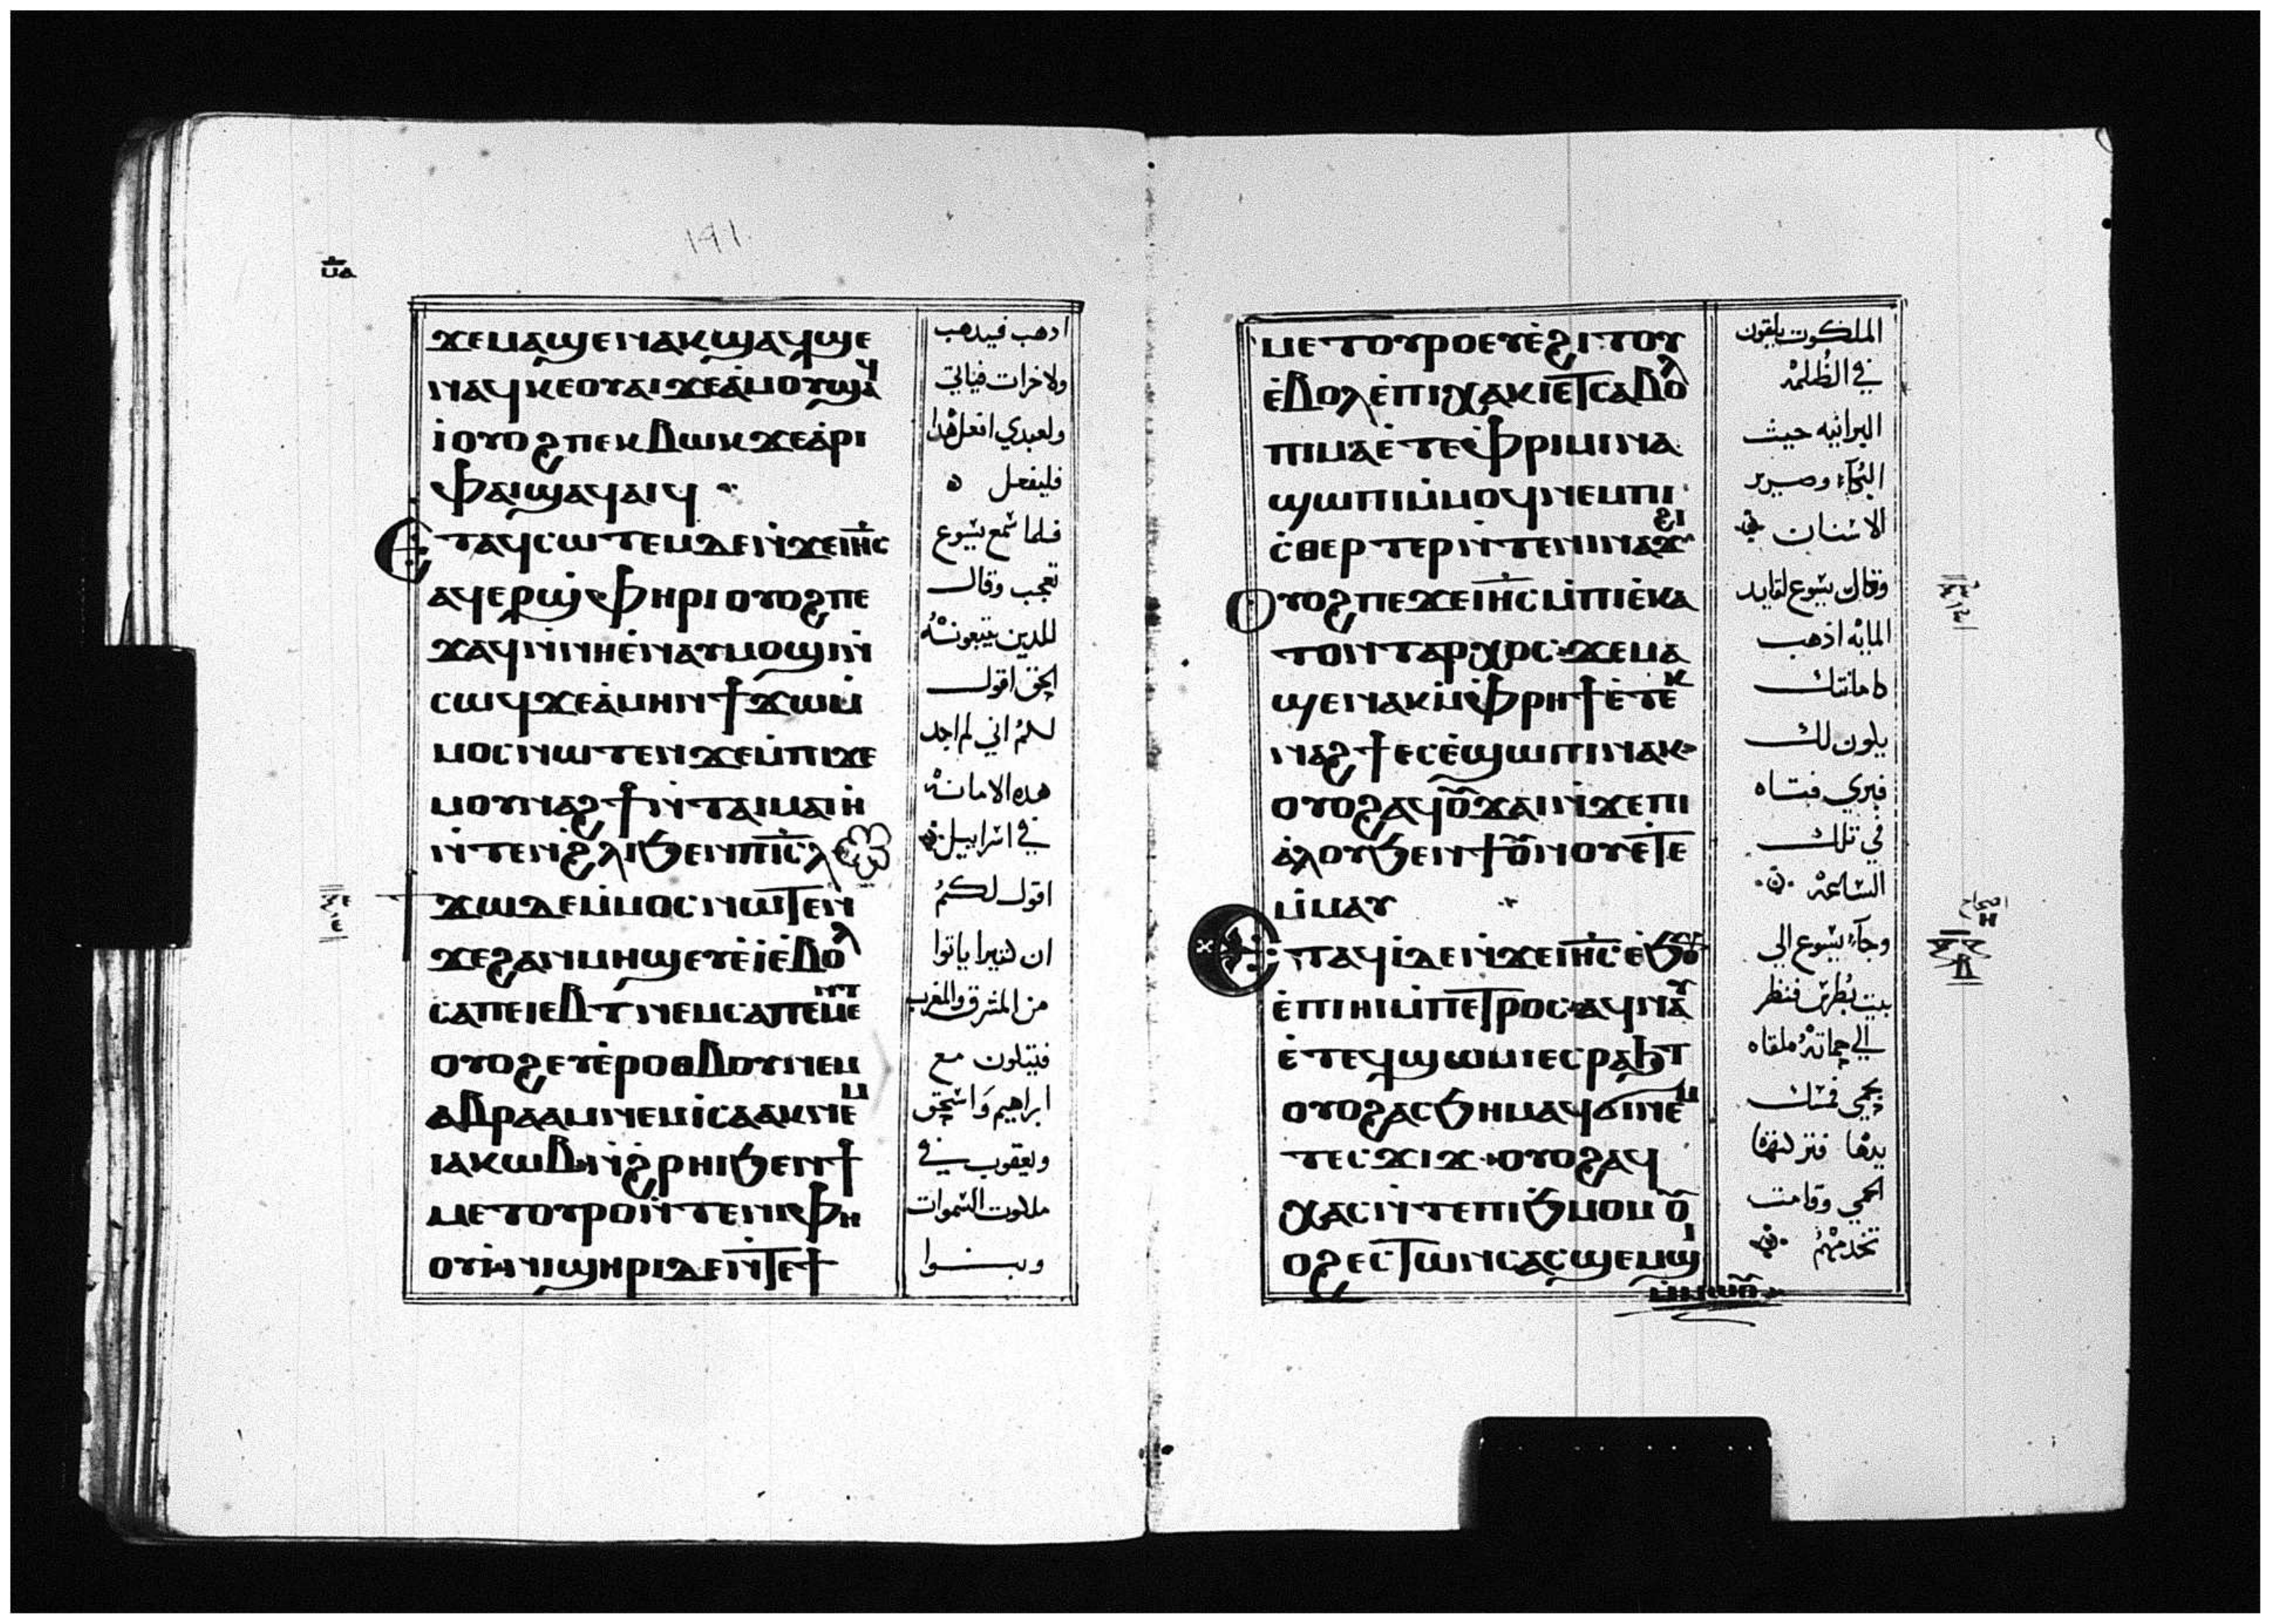 ⲙ̅ⲁ̅
١٩١
ϫⲉⲙⲁϣⲉⲛⲁⲕϣⲁϥϣⲉ
ⲛⲁϥⲕⲉⲟⲩⲁⲓϫⲉⲁ̀ⲙⲟⲩϣⲁϥ
ⲓ̀ⲟⲩⲟϩⲡⲉⲕⲃⲱⲕϫⲉⲁ̀ⲣⲓ
ⲫⲁⲓϣⲁϥⲁⲓϥ
ⲉⲧⲁϥⲥⲱⲧⲉⲙⲇⲉⲛ̀ϫⲉⲓⲏ̅ⲥ
ⲁϥⲉⲣϣ̀ⲫⲏⲣⲓⲟⲩⲟϩⲡⲉ
ϫⲁϥⲛ̀ⲛⲏⲉ̀ⲛⲁⲩⲙⲟϣⲓⲛ̀
ⲥⲱϥϫⲉⲁ̀ⲙⲏⲛϯϫⲱⲙ̀
ⲙⲟⲥⲛⲱⲧⲉⲛϫⲉⲙ̀ⲡⲓϫⲉ
ⲙⲟⲩⲛⲁϩϯⲛ̀ⲧⲁⲓⲙⲁⲓⲏ̀
ⲛ̀ⲧⲉⲛϩ̀ⲗⲓϧⲉⲛⲡⲓ̅ⲥ̅ⲗ
ϫⲱⲇⲉⲙ̀ⲙⲟⲥⲛⲱⲧⲉⲛ
ϫⲉϩⲁⲛⲙⲏϣⲉⲩⲉ̀ⲓ̀ⲉ̀ⲃⲟⲗ
ⲥⲁⲡⲉⲓⲉⲃⲧⲛⲉⲙⲥⲁⲡⲉⲙⲉⲛⲧ
ⲟⲩⲟϩⲉⲩⲉ̀ⲣⲟⲑⲃⲟⲩⲛⲉⲙ
ⲁⲃⲣⲁⲁⲙⲛⲉⲙⲓ̀ⲥⲁⲁⲕⲛⲉⲙ
ⲓⲁⲕⲱⲃⲛ̀ϩ̀ⲣⲏⲓϧⲉⲛϯ
ⲙⲉⲧⲟⲩⲣⲟⲛ̀ⲧⲉⲛⲓⲫⲏ
ⲟⲩⲓ̀ⲛⲓϣⲏⲣⲓⲇⲉⲛ̀ⲧⲉϯ
ادهب فيدهب
ولاخرات فياتي
ولعبدي افعل هدا
فليفعل
فلما سمع يسوع
تعجب وقال
للدين يتبعونه
الحق اقول
لكم اني لم اجد
هده الامانة
في اسراييل
اقول لكم
ان كثيرا ياتوا
من المشرق والمغرب
فيتكون مع
ابراهيم واسحق
ويعقوب في
ملكوت السموات
وبنوا
ⲙⲉⲧⲟⲩⲣⲟⲉⲩⲉ̀ϩⲓⲧⲟⲩ
ⲉ̀ⲃⲟⲗⲉ̀ⲡⲓⲭⲁⲕⲓⲉⲧⲥⲁⲃⲟⲗ
ⲡⲓⲙⲁⲉ̀ⲧⲉⲫⲣⲓⲙⲓⲛⲁ
ϣⲱⲡⲓⲙ̀ⲙⲟϥⲛⲉⲙⲡⲓ
ⲥ̀ⲑⲉⲣⲧⲉⲣⲛ̀ⲧⲉⲛⲓⲛⲁϫϩⲓ
ⲟⲩⲟϩⲡⲉϫⲉⲓⲏ̅ⲥⲙ̀ⲡⲓⲉ̀ⲕⲁ
ⲧⲟⲛⲧⲁⲣⲭⲟⲥϫⲉⲙⲁ
ϣⲉⲛⲁⲕⲙ̀ⲫⲣⲏϯⲉ̀ⲧⲉⲕ
ⲛⲁϩϯⲉⲥⲉ̀ϣⲱⲡⲓⲛⲁⲕ
ⲟⲩⲟϩⲁϥⲟⲩϫⲁⲓⲛ̀ϫⲉⲡⲓ
ⲁ̀ⲗⲟⲩϧⲉⲛϯⲟⲩⲛⲟⲩⲉ̀ⲧⲉ
ⲙ̀ⲙⲁⲩ
ⲉⲧⲁϥⲓ̀ⲇⲉⲛ̀ϫⲉⲓⲏ̅ⲥⲉ̀ϧⲟⲩⲛ
ⲉ̀ⲡⲓⲏⲓⲙ̀ⲡⲉⲧⲣⲟⲥⲁϥⲛⲁⲩ
ⲉ̀ⲧⲉϥϣⲱⲙⲓⲉⲥⲣⲁϧⲧ
ⲟⲩⲟϩⲁⲥϧⲏⲙⲁϥϭⲓⲛⲉⲙ
ⲧⲉⲥϫⲓϫⲟⲩⲟϩⲁϥ
ⲭⲁⲥⲛ̀ⲧⲉⲡⲓϧⲙⲟⲙⲟⲩ
ⲟϩⲉⲥⲧⲱⲛⲥⲁⲥϣⲉⲙϣⲓ
ⲙ̀ⲙⲱⲟⲩ
الملكوت يلقون
في الظلمة
البرانيه حيث
البكاء وصرير
الاسنان
وقال يسوع لقايد
الماية اذهب
كامانتك
يكون لك
فبري فتاه
في تلك
الساعة
وجاء يسوع الي
بيت بطرس فنظر
الي حماته ملقاه
بحمي فمسك
يدها فتركتها
الحمي وقامت
تخدمهم
اصحاح
ⲏ